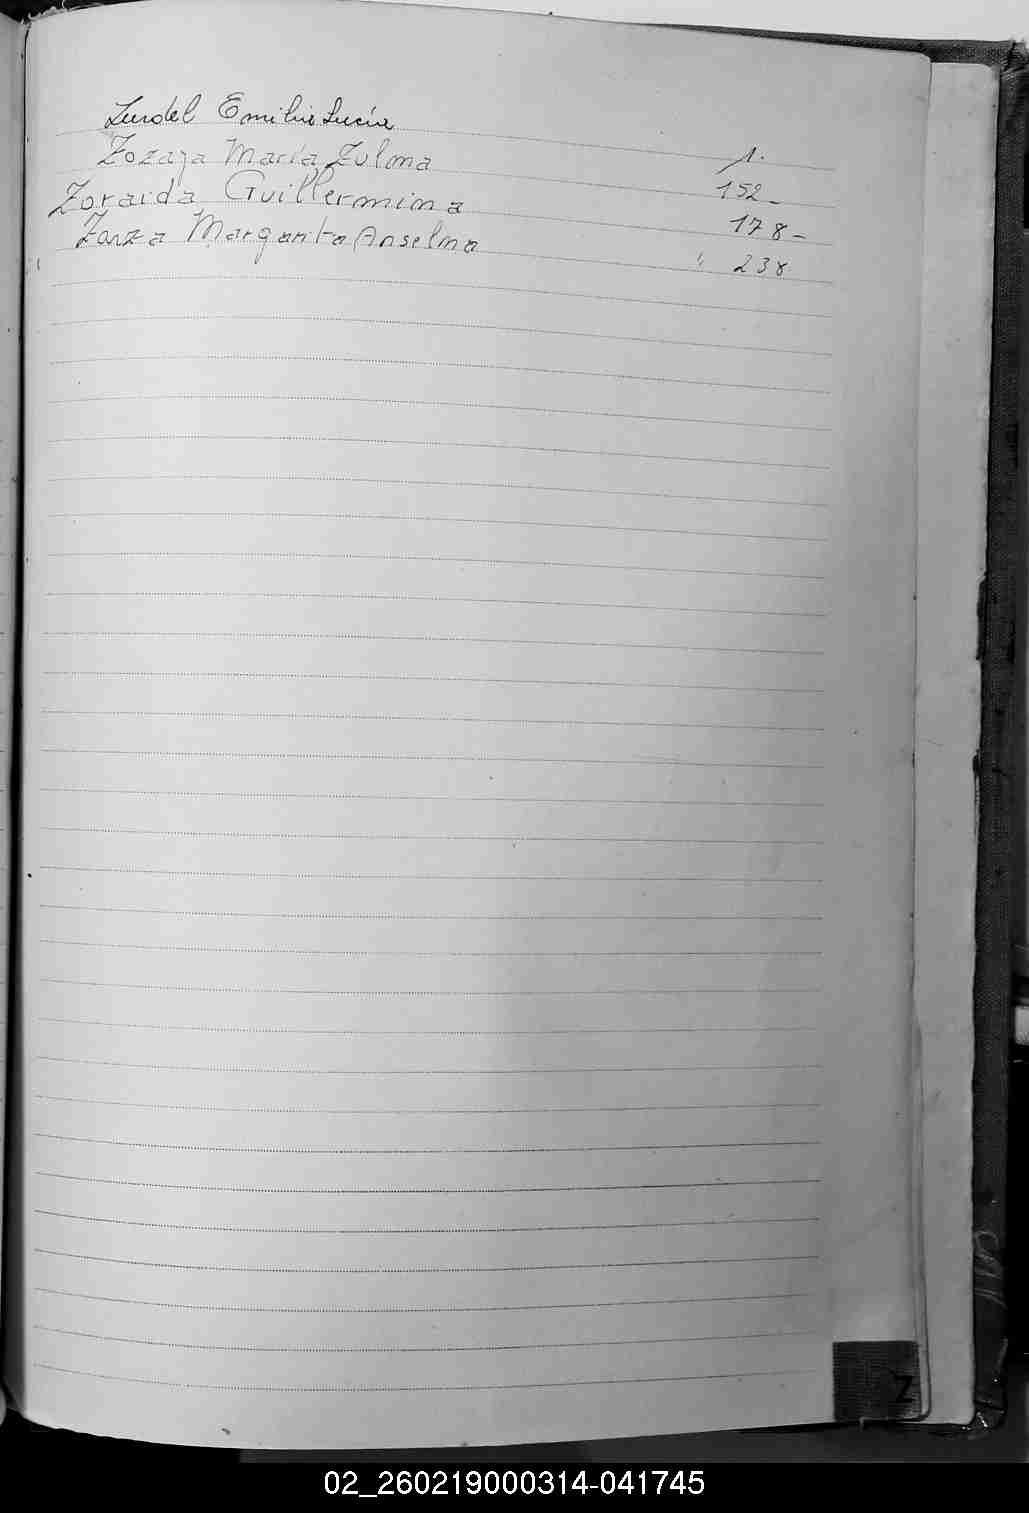 Zurdel Emilia Lucía 1.
Zozaya María Zulma 152-
Zoraida Guillermina 178-
Zanza Margarita Anselma " 238
Z
02_260219000314-041745